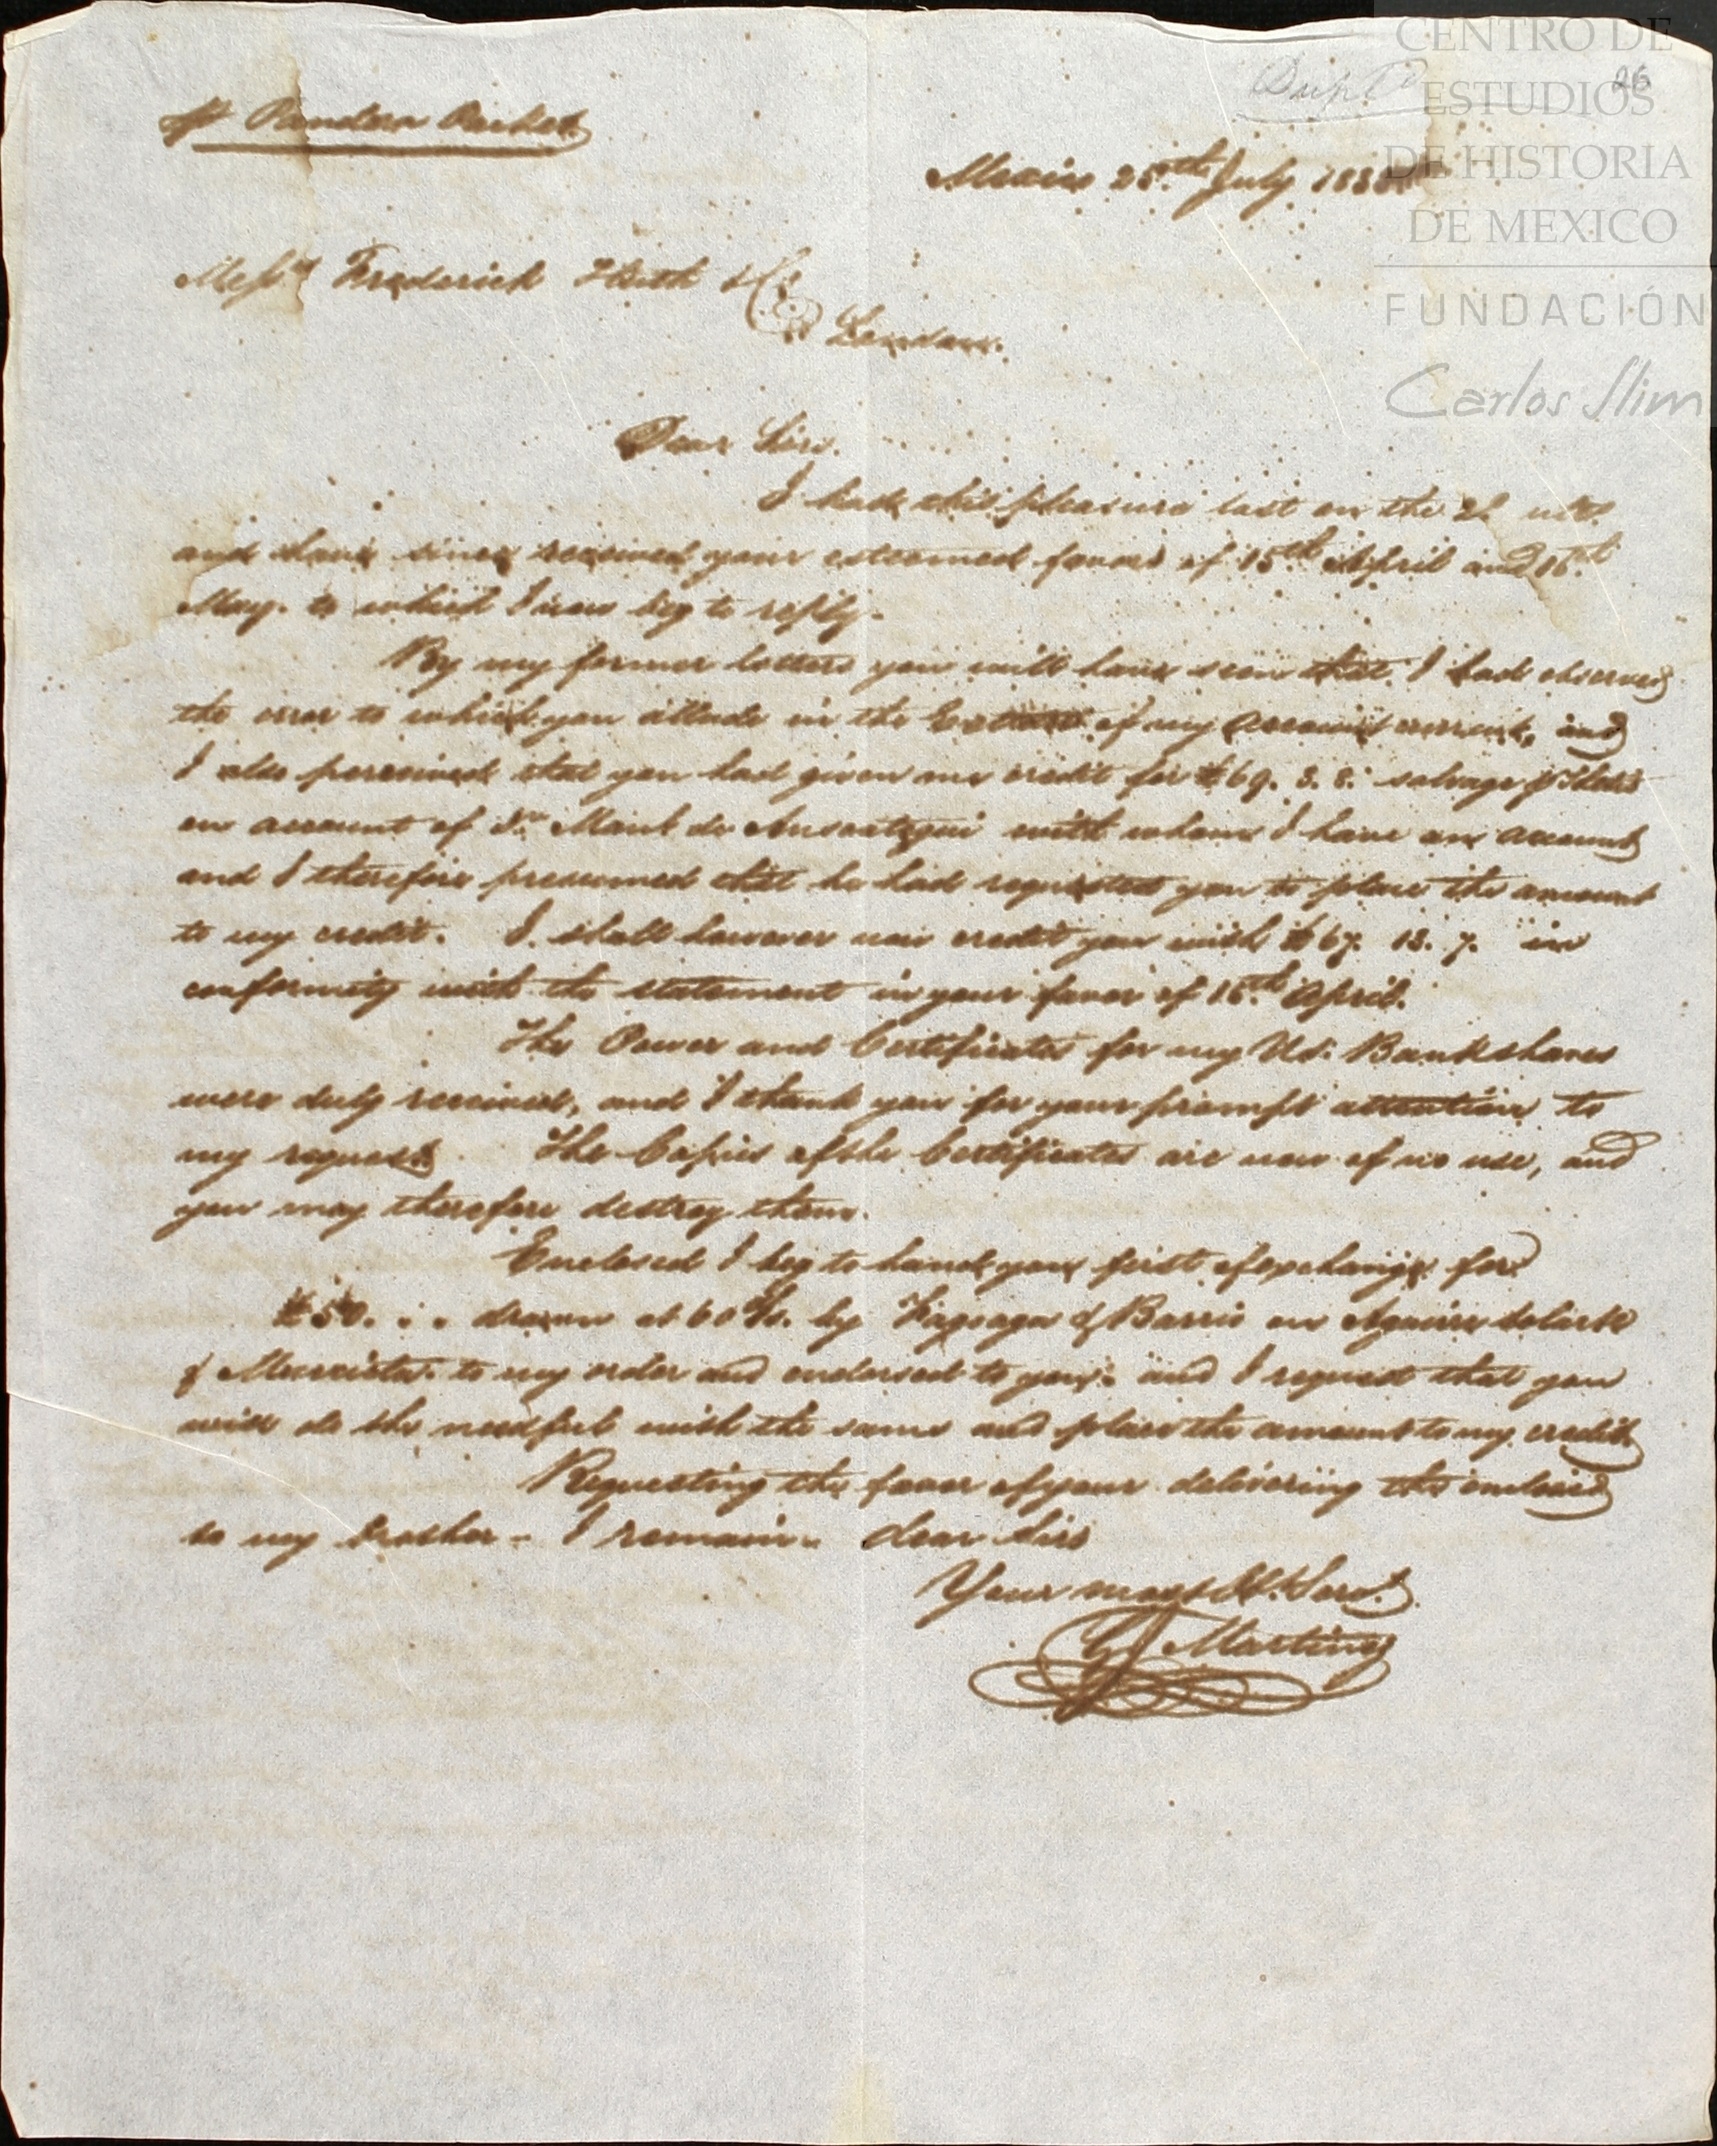 26
CENTRO DE
ESTUDIOS
DE HISTORIA
DE MEXICO
FUNDACIÓN
Carlos Slim
pr Pandora Packet
Mexico 25th July 183
Messrs Frederick Huth & Co
London.
Dear Sirs.
I had this pleasure last on the ulto.
and have since received your esteemed favors of 15th April and 16th
May. to which I now beg to reply.
By my former letters you will have seen that I had observed
the error to which you allude in the Extract of my account current, and
I also perceived that you had given me credit for £69. 3. 8. salvage pr
on account of Dn Manl de Ansoategui with whom I have an account
and I therefore presumed that he had requested you to place the amount
to my credit. I shall however now credit you with £67. 13. 7. in
conformity with the statement in your favor of 15th April.
The Power and Certificates for my US. Bank shares
were duly received, and I thank you for your prompt attention to
my request. The Copies of the Certificates are now of no use, and
you may therefore destroy them.
Enclosed I beg to hand you first of exchange for
£50. . . drawn at 60 d/s. by & Barrio on Aguirre Solarte
& Murrieta. to my order and endorsed to you. and I request that you
will do the needful with the same and place the amount to my credit.
Requesting the favor of your delivering the enclosed
to my Brother - I remain - dear Sirs
Your most Ob. Servt.
Martinez